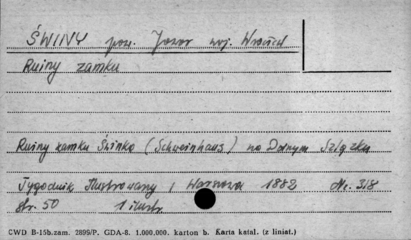 ŚWINY pow. Jawor woj. Wrocław
Ruiny zamku
Ruiny zamku Świnko (Schweinhaus) na Dolnym Szlązku
Tygodnik Illustrowany, Warszawa 1882 Nr. 318
str. 50 1 ilustr.
CWD B-15b.zam. 2899/P. GDA-8. 1.000.000. karton b. Karta katal. (z liniat.)